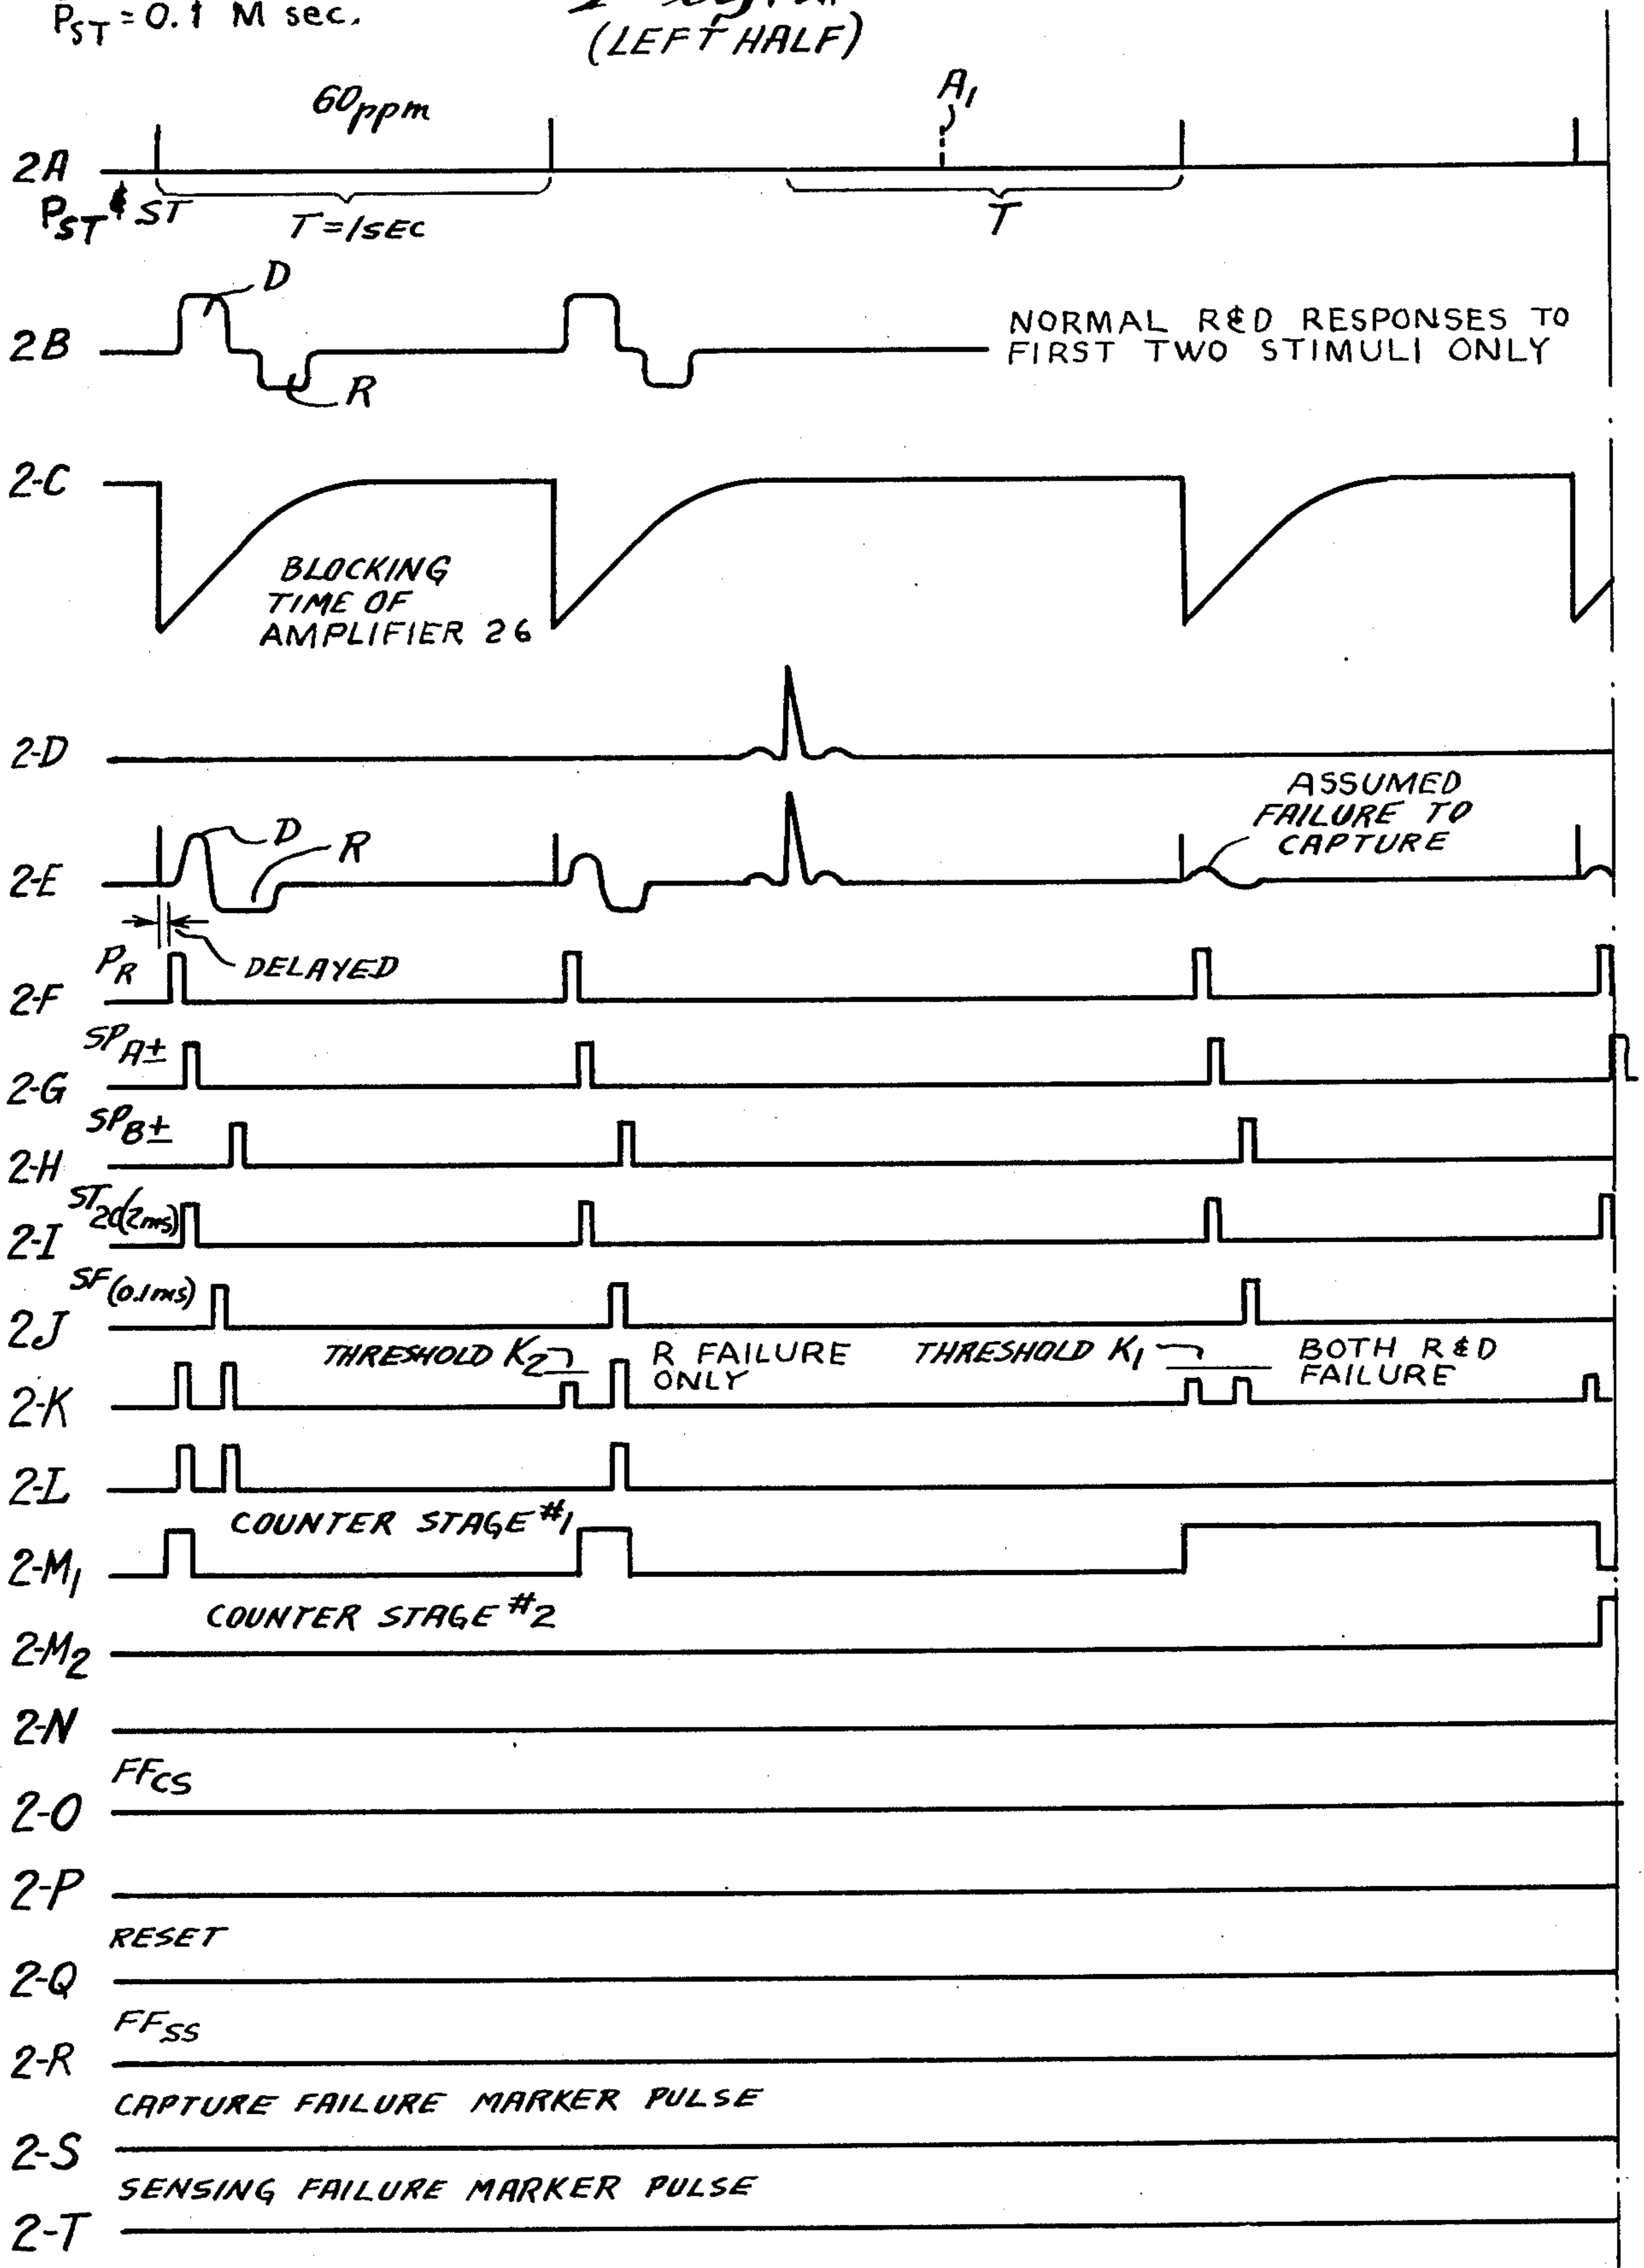 P_ST = 0.1 M sec.
(LEFT HALF)
60ppm
A1
2A
P_ST & ST
T=1SEC
T
D
2B
R
NORMAL R&D RESPONSES TO
FIRST TWO STIMULI ONLY
2-C
BLOCKING
TIME OF
AMPLIFIER 26
2-D
ASSUMED
FAILURE TO
CAPTURE
D
R
2-E
DELAYED
P_R
2-F
SP_A±
2-G
SP_B±
2-H
ST_2d(2ms)
2-I
SF(0.1ms)
2J
THRESHOLD K2
R FAILURE
ONLY
THRESHOLD K1
BOTH R&D
FAILURE
2-K
2-L
COUNTER STAGE #1
2-M1
COUNTER STAGE #2
2-M2
2-N
FF_CS
2-O
2-P
RESET
2-Q
FF_SS
2-R
CAPTURE FAILURE MARKER PULSE
2-S
SENSING FAILURE MARKER PULSE
2-T